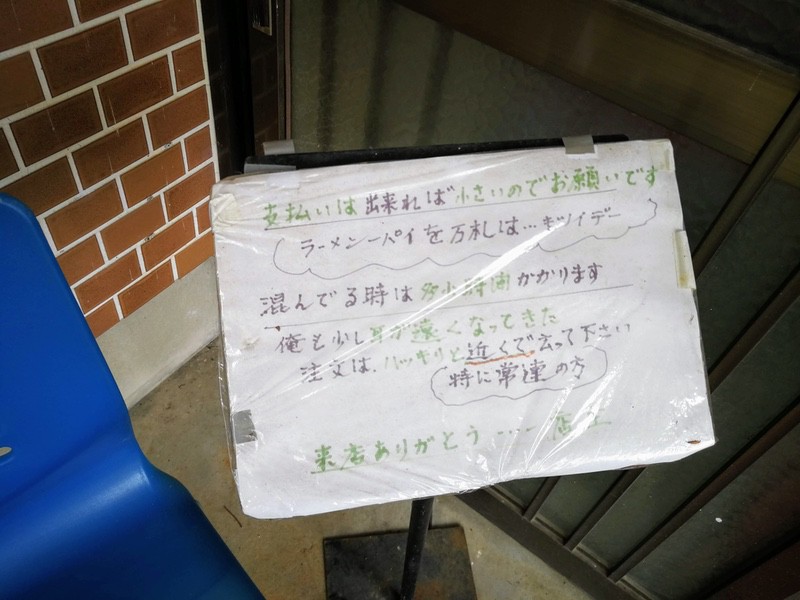 支払いは出来れば小さいのでお願いです
ラーメン一パイを万札は…キツイデー
混んでる時は多少時間かかります
俺も少し耳が遠くなってきた
注文は、ハッキリと近くで云って下さい
特に常連の方
来店ありがとう……店主